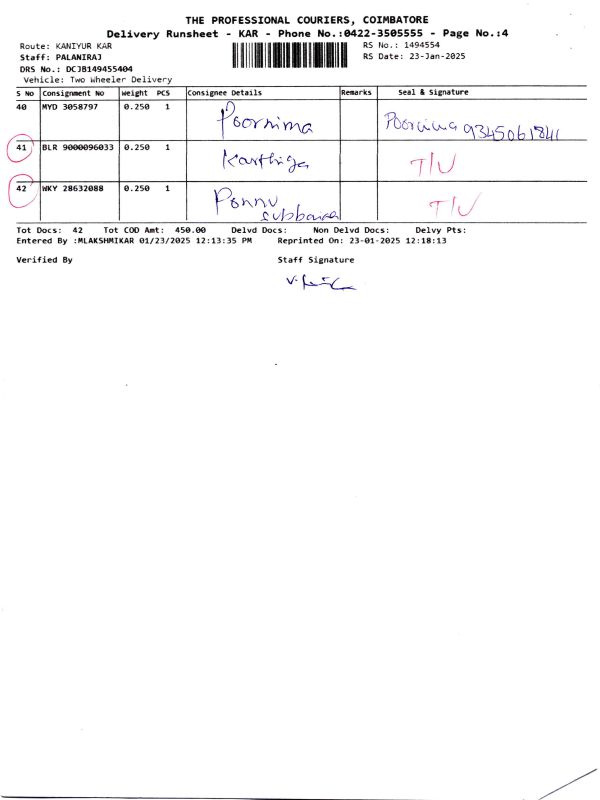 THE PROFESSIONAL COURIERS, COIMBATORE
Delivery Runsheet - KAR - Phone No.:0422-3505555 - Page No.:4
Route: KANIYUR KAR RS No.: 1494554
Staff: PALANIRAJ RS Date: 23-Jan-2025
DRS No.: DCJB149455404
Vehicle: Two Wheeler Delivery
S No Consignment No Weight PCS Consignee Details Remarks Seal & Signature
40 MYD 3058797 0.250 1 Poornima Poornima 9345061841
41 BLR 9000096033 0.250 1 Karthiga T/U
42 WKY 28632088 0.250 1 Ponnu T/U
Tot Docs: 42 Tot COD Amt: 450.00 Delvd Docs: Non Delvd Docs: Delvy Pts:
Entered By :MLAKSHMIKAR 01/23/2025 12:13:35 PM Reprinted On: 23-01-2025 12:18:13
Verified By Staff Signature